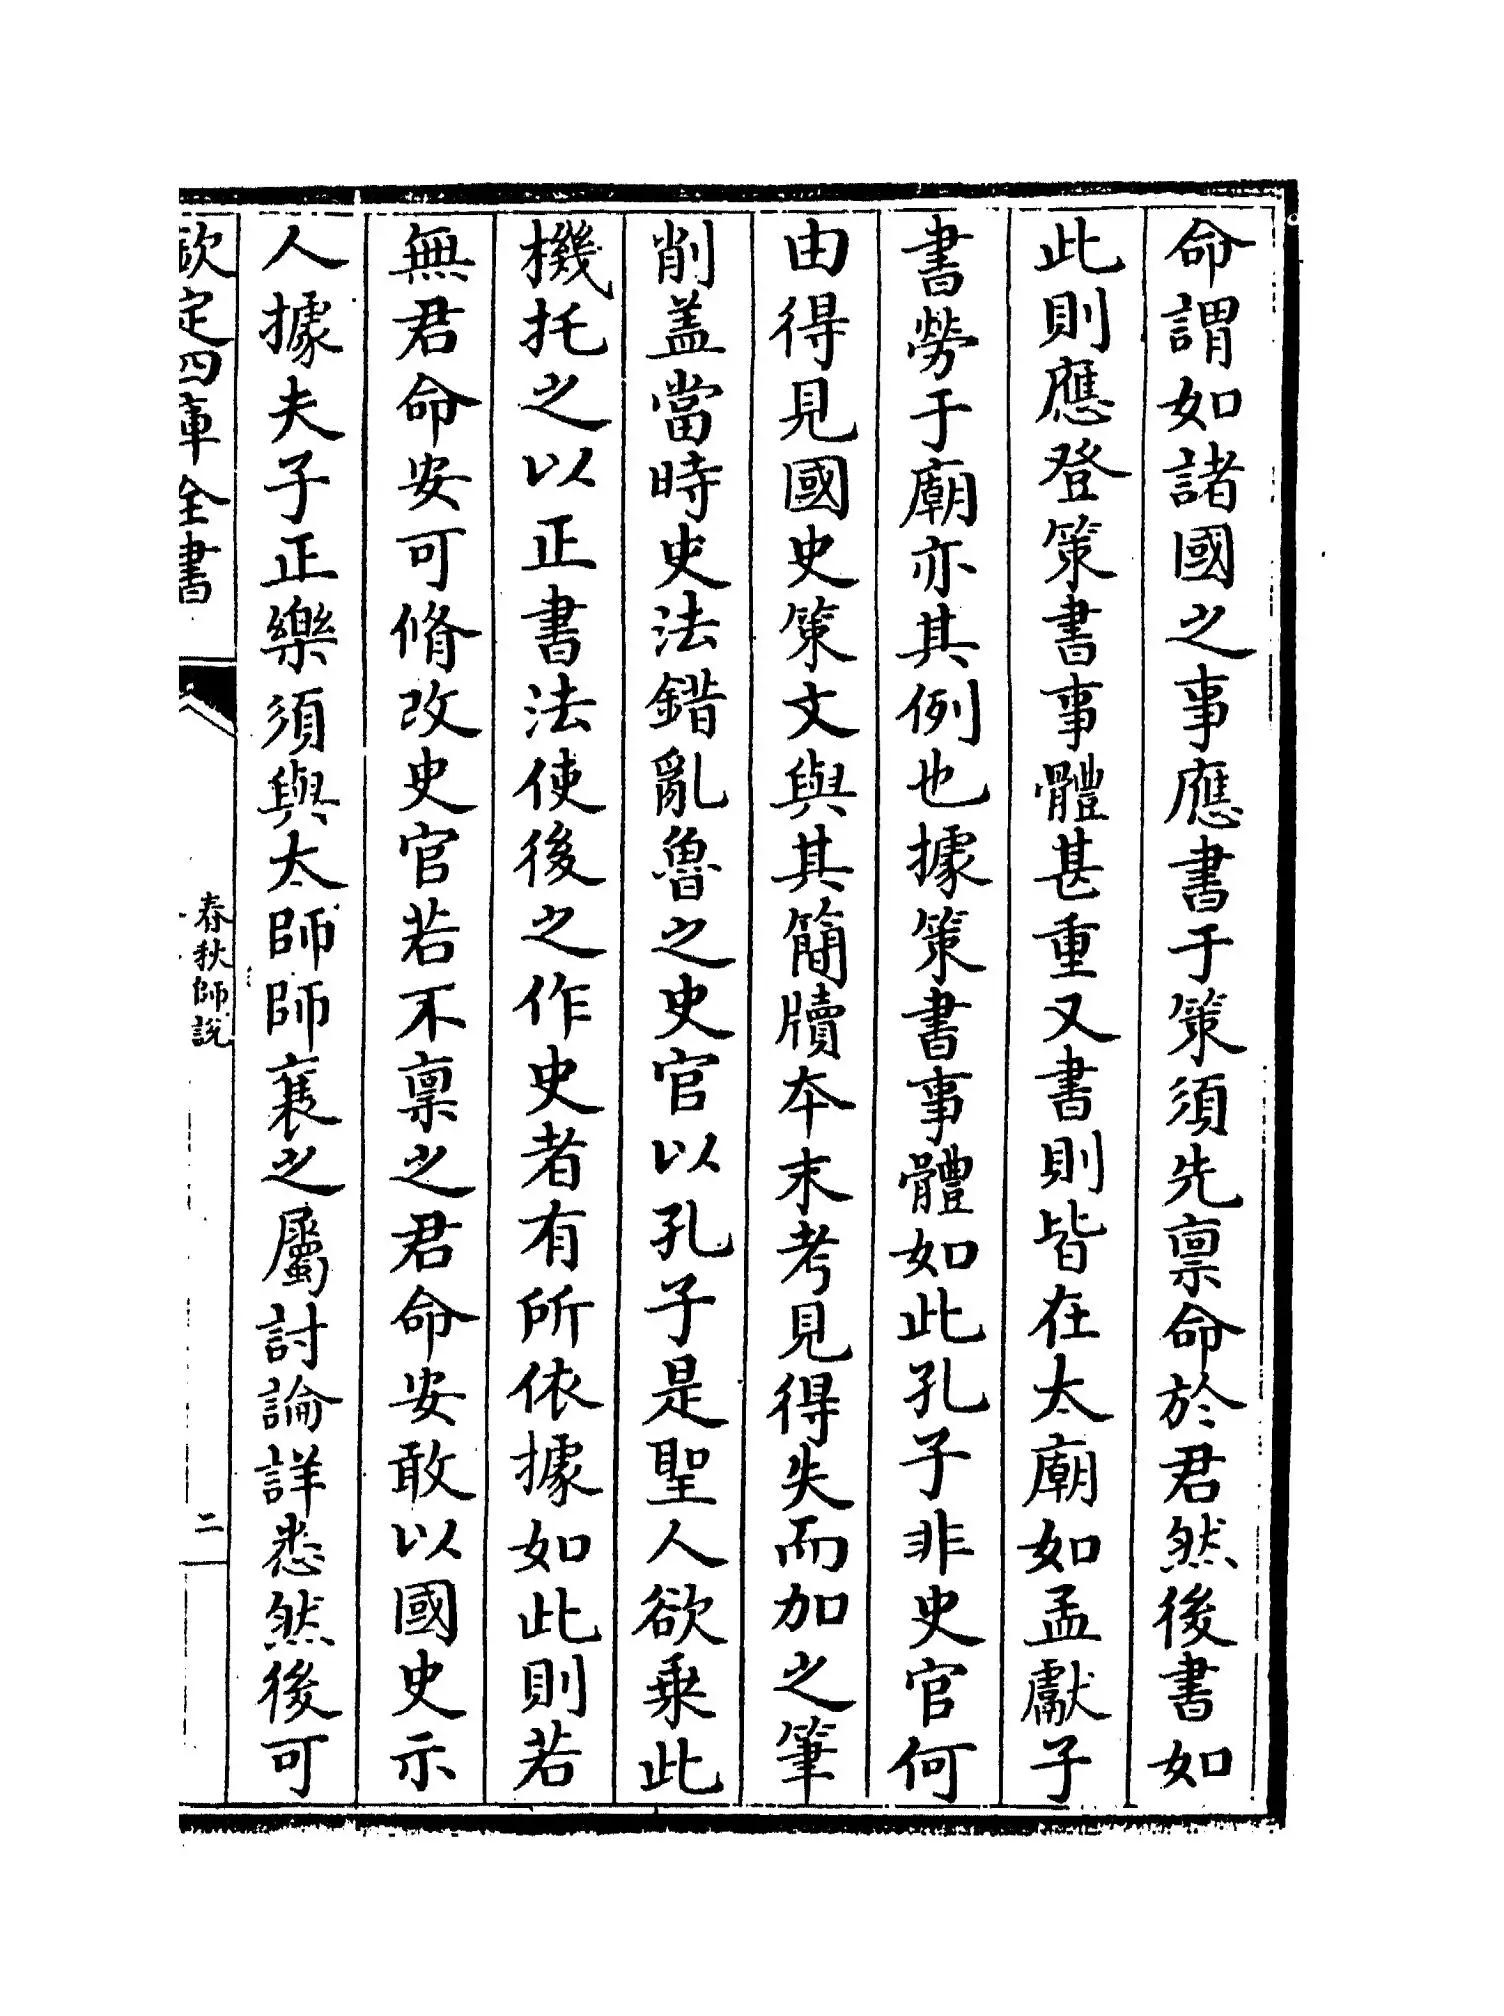 命謂如諸國之事應書于策須先禀命於君然後書如
此則應登策書事體甚重又書則皆在太廟如孟獻子
書勞于廟亦其例也據策書事體如此孔子非史官何
由得見國史策文與其簡牘本末考見得失而加之筆
削盖當時史法錯亂魯之史官以孔子是聖人欲乗此
機托之以正書法使後之作史者有所依據如此則若
無君命安可脩改史官若不禀之君命安敢以國史示
人據夫子正樂須與太師師襄之屬討論詳悉然後可
欽定四庫全書
春秋師說
二